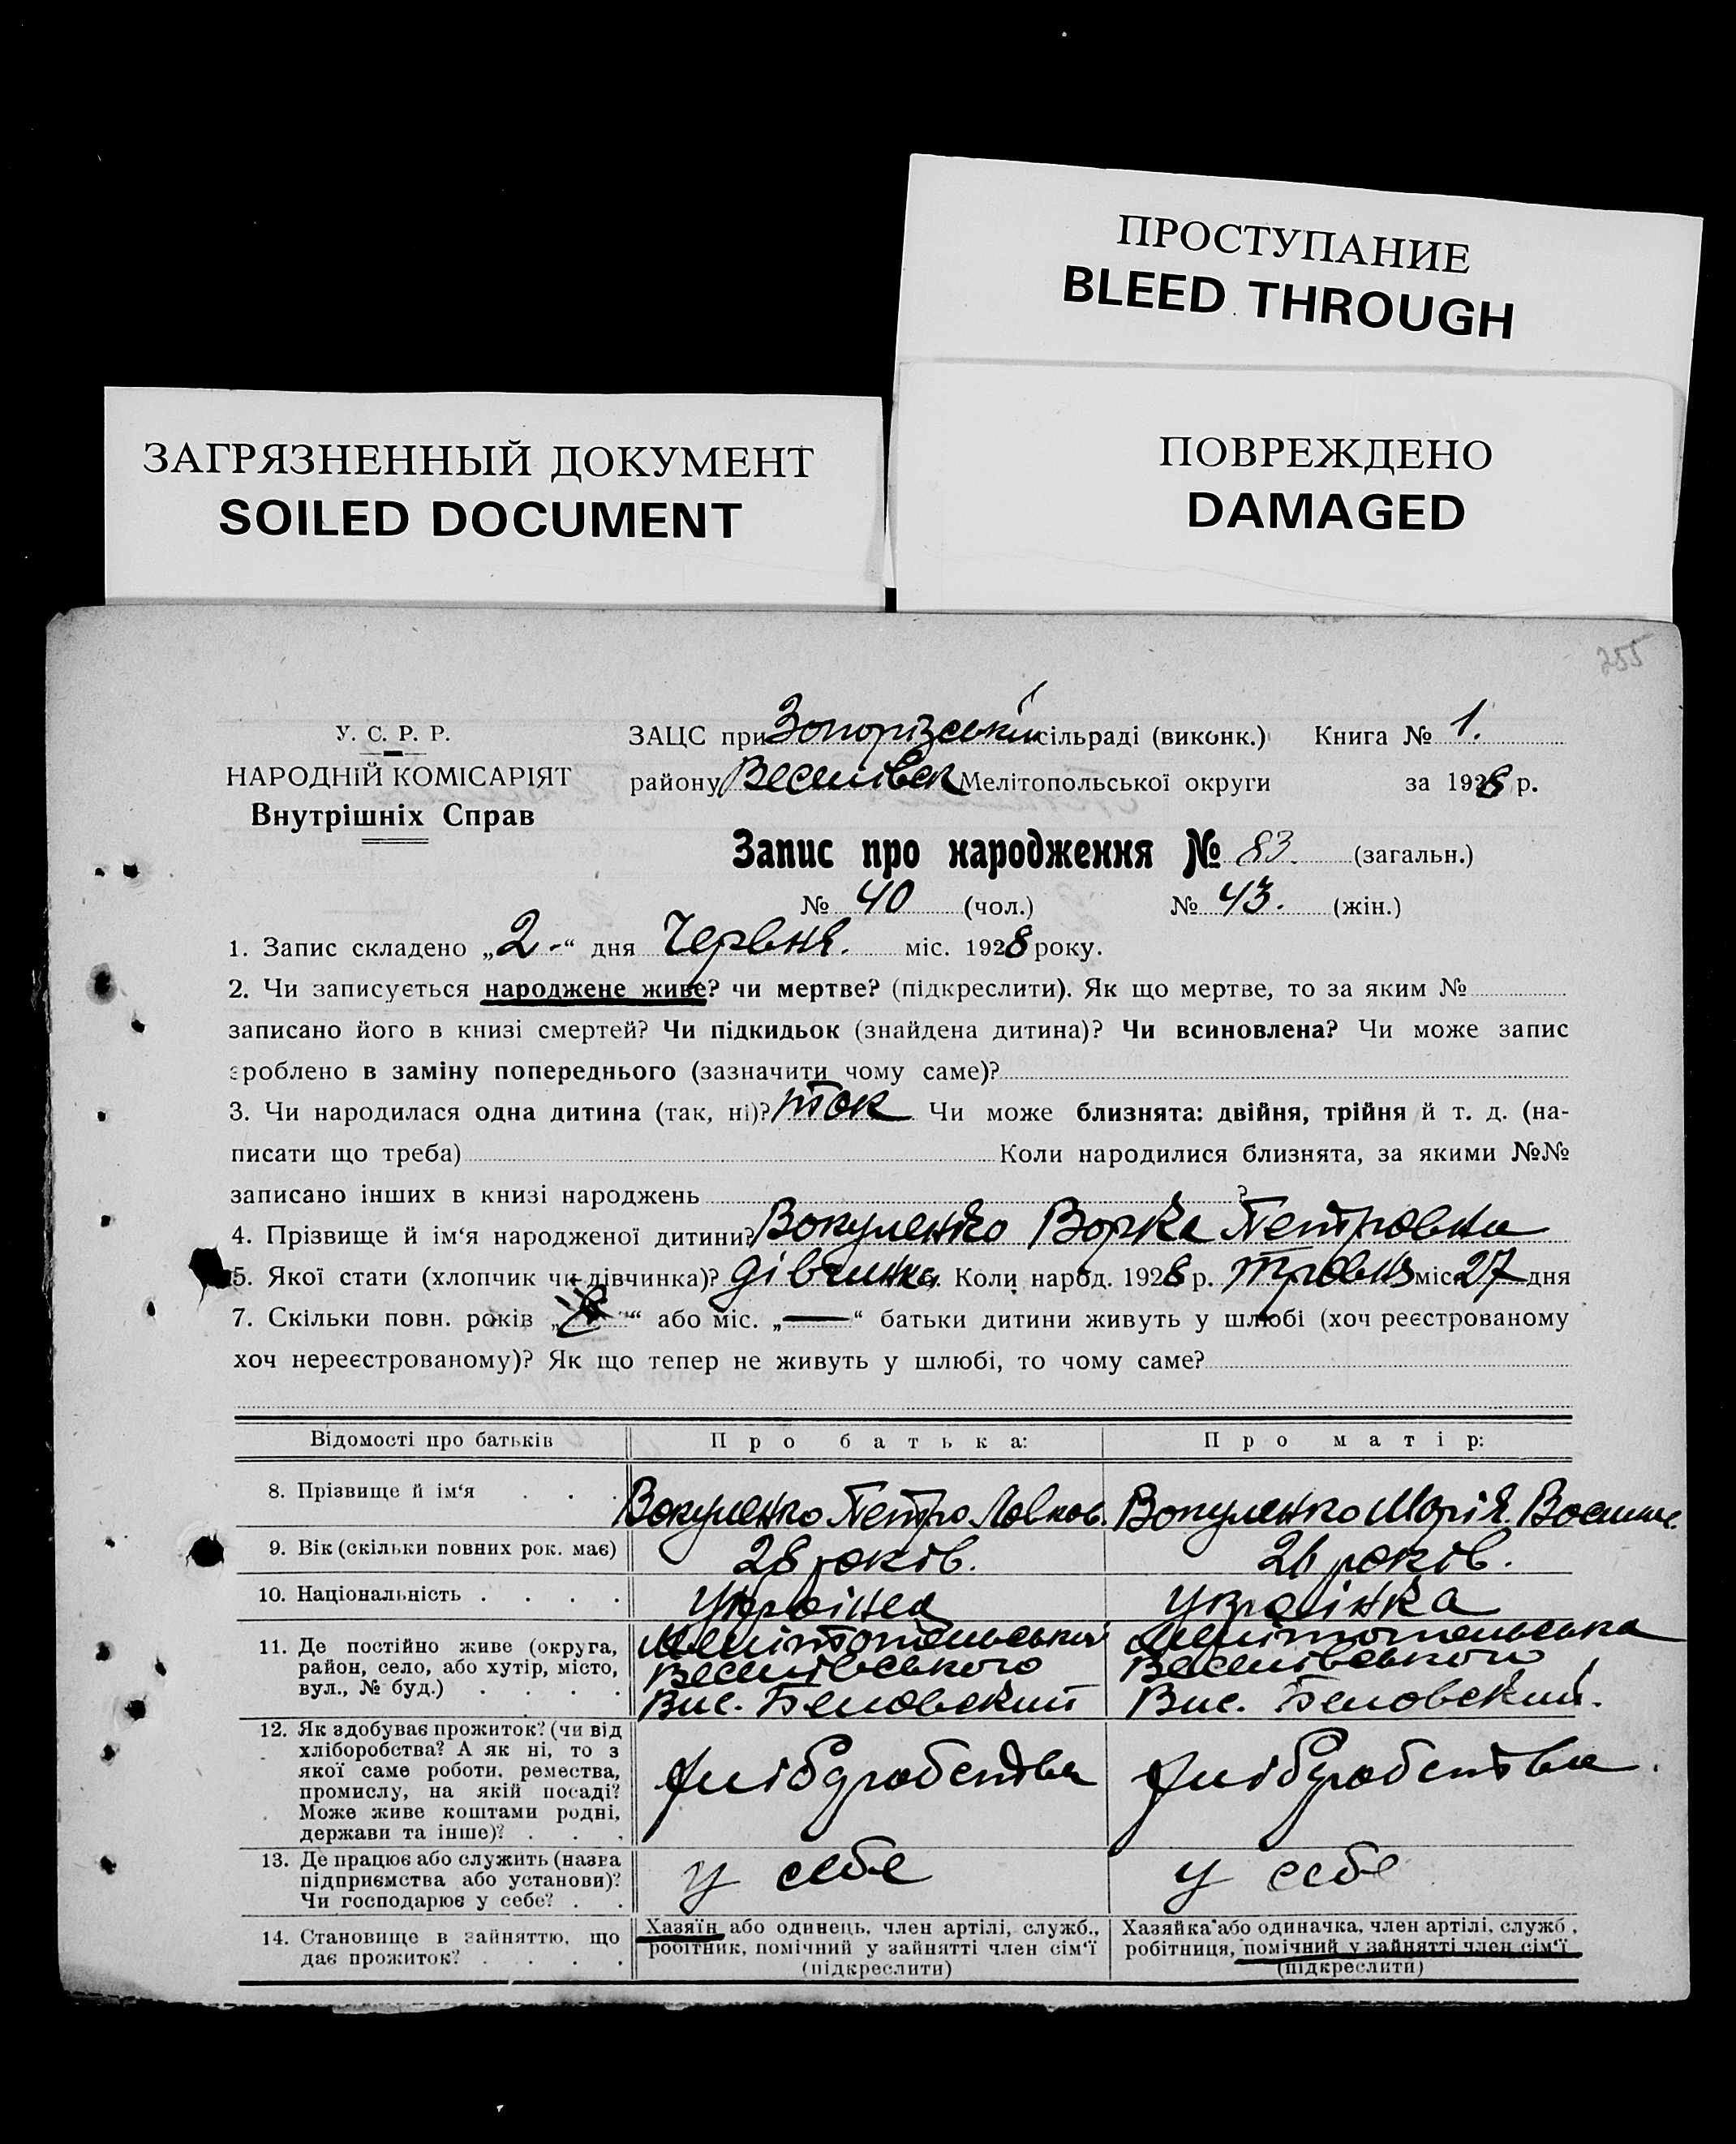 ПРОСТУПАНИЕ
BLEED THROUGH
ЗАГРЯЗНЕННЫЙ ДОКУМЕНТ
SOILED DOCUMENT
ПОВРЕЖДЕНО
DAMAGED
255
У. С. Р. Р.
НАРОДНІЙ КОМІСАРІЯТ
Внутрішніх Справ
ЗАЦС при Запорізській сільраді (виконк.) Книга № 1.
району Веселівськ Мелітопольської округи за 1928 р.
Запис про народження № 83. (загальн.)
№ 40 (чол.) № 43. (жін.)
1. Запис складено „2-“ дня Червня. міс. 1928 року.
2. Чи записується народжене живе? чи мертве? (підкреслити). Як що мертве, то за яким №
записано його в книзі смертей? Чи підкидьок (знайдена дитина)? Чи всиновлена? Чи може запис
зроблено в заміну попереднього (зазначити чому саме)?
3. Чи народилася одна дитина (так, ні)? так Чи може близнята: двійня, трійня й т. д. (на-
писати що треба) Коли народилися близнята, за якими №№
записано інших в книзі народжень ?
4. Прізвище й ім‘я народженої дитини? Вакуленко Варка Петровна
5. Якої стати (хлопчик чи дівчинка)? дівчинка. Коли народ. 1928 р. травня міс. 27 дня
7. Скільки повн. років „ “ або міс. „—“ батьки дитини живуть у шлюбі (хоч реєстрованому
хоч нереєстрованому)? Як що тепер не живуть у шлюбі, то чому саме?
Відомості про батьків Про батька: Про матір:
8. Прізвище й ім‘я . . . Вакуленко Петро Вакуленко Марія
9. Вік (скільки повних рок. має) 28 років. 26 років.
10. Національність . . . . Українец Українка
11. Де постійно живе (округа,
район, село, або хутір, місто,
вул., № буд.) . . . .
Мелітопольська
Веселівського
Вис. Беловский
Мелітопольська
Веселівського
Вис. Беловский.
12. Як здобуває прожиток? (чи від
хліборобства? А як ні, то з
якої саме роботи, ремества,
промислу, на якій посаді?
Може живе коштами родні,
держави та інше)? . . .
хлібробства хлібробства.
13. Де працює або служить (назва
підприємства або установи)?
Чи господарює у себе? . .
у себе у себе
14. Становище в зайняттю, що
дає прожиток? . . . .
Хазяїн або одинець, член артілі, служб.,
робітник, помічний у зайнятті член сім‘ї
(підкреслити)
Хазяйка або одиначка, член артілі, служб.,
робітниця, помічний у зайнятті член сім‘ї
(підкреслити)